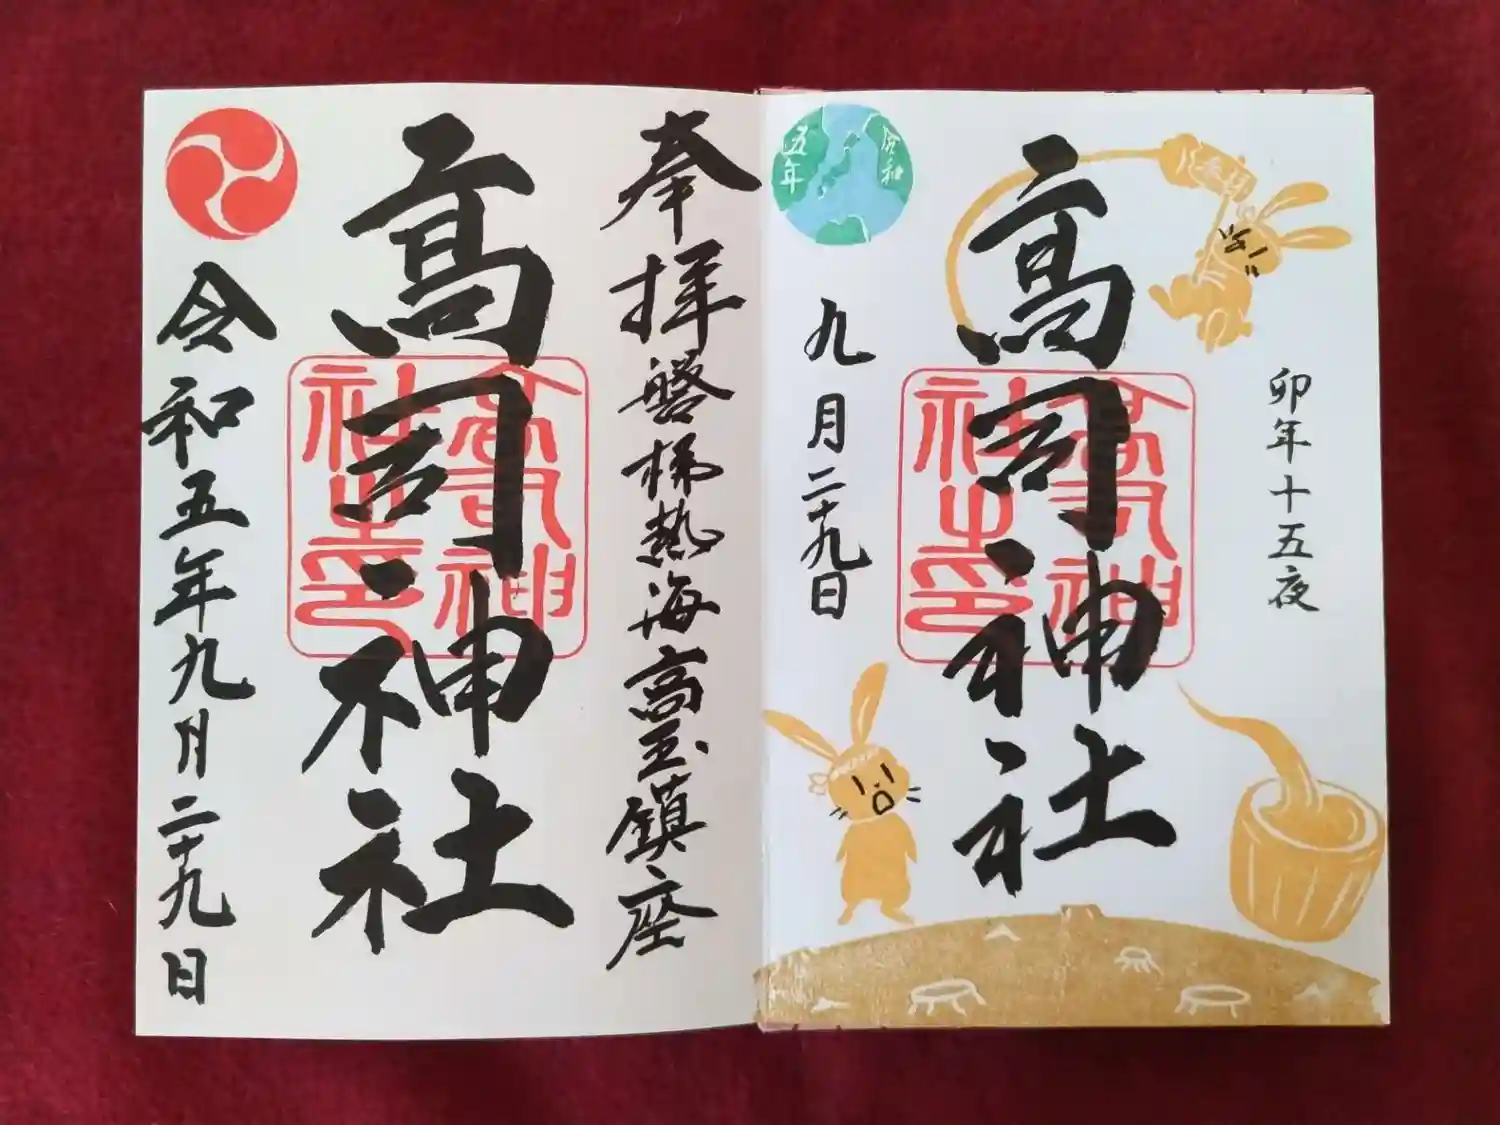 卯年十五夜
高司神社
高司神
社之印
令和
五年
九月二十九日
奉拝 磐梯熱海高玉鎮座
高司神社
高司神
社之印
令和五年九月二十九日